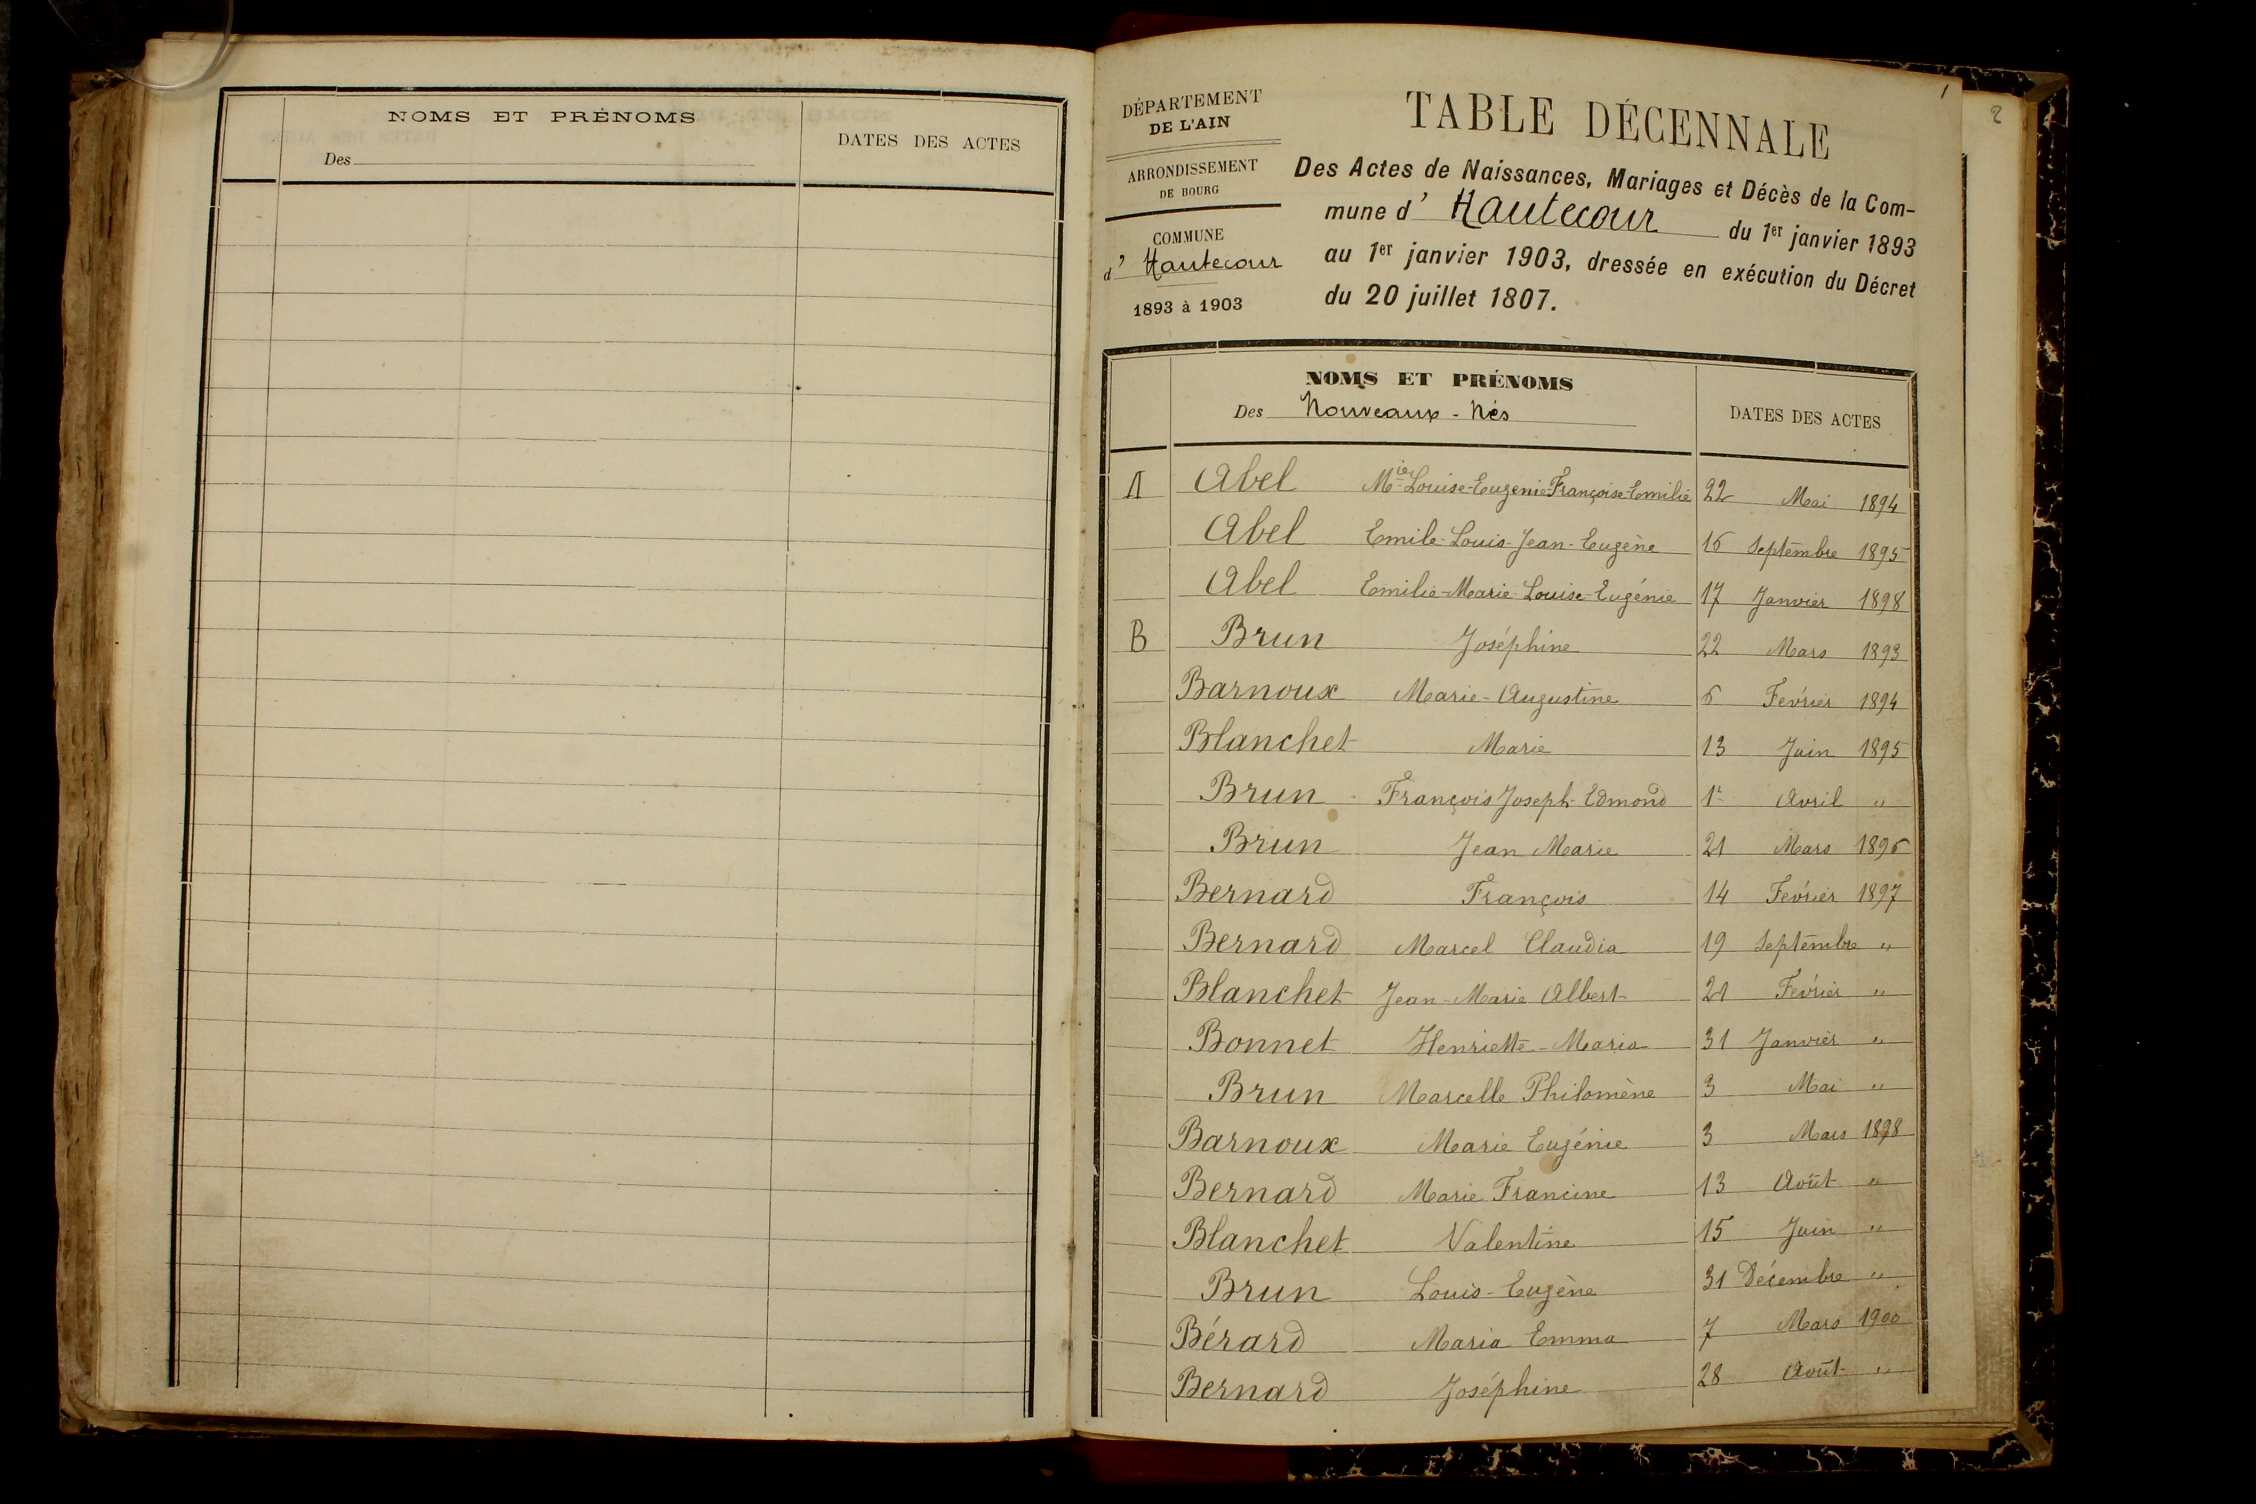 NOMS ET PRÉNOMS
Des
DATES DES ACTES
1
2
DÉPARTEMENT
DE L'AIN
ARRONDISSEMENT
DE BOURG
COMMUNE
d' Hautecour
1893 à 1903
TABLE DÉCENNALE
Des Actes de Naissances, Mariages et Décès de la Com-
mune d' Hautecour du 1er janvier 1893
au 1er janvier 1903, dressée en exécution du Décret
du 20 juillet 1807.
NOMS ET PRÉNOMS
Des Nouveaux-Nés
DATES DES ACTES
A Abel Mie-Louise-Eugenie-Françoise-Emilie 22 Mai 1894
Abel Emile-Louis-Jean-Eugène 16 Septembre 1895
Abel Emilie-Marie-Louise-Eugénie 17 Janvier 1898
B Brun Joséphine 22 Mars 1893
Barnoux Marie-Augustine 6 Février 1894
Blanchet Marie 13 Juin 1895
Brun François Joseph-Edmond 1r Avril "
Brun Jean Marie 21 Mars 1896
Bernard François 14 Février 1897
Bernard Marcel Claudia 19 Septembre "
Blanchet Jean-Marie Albert 21 Février "
Bonnet Henriette-Maria 31 Janvier "
Brun Marcelle Philomène 3 Mai "
Barnoux Marie Eugénie 3 Mars 1898
Bernard Marie Francine 13 Août "
Blanchet Valentine 15 Juin "
Brun Louis-Eugène 31 Décembre "
Bérard Maria Emma 7 Mars 1900
Bernard Joséphine 28 Août "